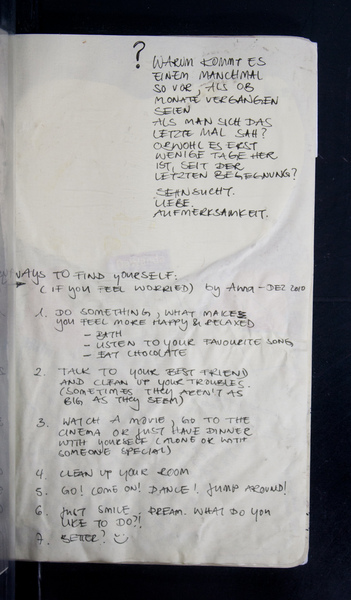 ? WARUM KOMMT ES
EINEM MANCHMAL
SO VOR, ALS OB
MONATE VERGANGEN
SEIEN
ALS MAN SICH DAS
LETZTE MAL SAH?
OBWOHL ES ERST
WENIGE TAGE HER
IST, SEIT DER
LETZTEN BEGEGNUNG?
SEHNSUCHT.
LIEBE.
AUFMERKSAMKEIT.
WAYS TO FIND YOURSELF:
(IF YOU FEEL WORRIED) by Anna - DEZ 2010
1. DO SOMETHING, WHAT MAKES
YOU FEEL MORE HAPPY & RELAXED
- BATH
- LISTEN TO YOUR FAVOURITE SONG
- EAT CHOCOLATE
2. TALK TO YOUR BEST FRIEND
AND CLEAN UP YOUR TROUBLES.
(SOMETIMES THEY AREN'T AS
BIG AS THEY SEEM)
3. WATCH A MOVIE, GO TO THE
CINEMA OR JUST HAVE DINNER
WITH YOURSELF (ALONE OR WITH
SOMEONE SPECIAL)
4. CLEAN UP YOUR ROOM
5. GO! COME ON! DANCE! JUMP AROUND!
6. JUST SMILE. DREAM. WHAT DO YOU
LIKE TO DO?!
7. BETTER? :)